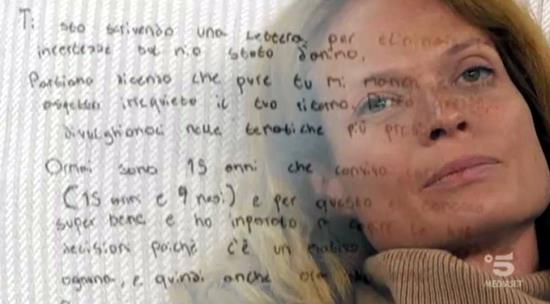 T:
sto scrivendo una lettera per elimina
incertezze sul mio stato d'animo,
Partiamo dicendo che pure tu mi manchi
aspetto irrequieto il tuo ritorno,
divulghiamoci nelle tematiche più
Ormai sono 15 anni che convivo
(15 anni e 9 mesi) e per questo
super bene e ho imparato a
decisioni poiché c'è un
ognuna, e quindi anche
5
MEDIASET